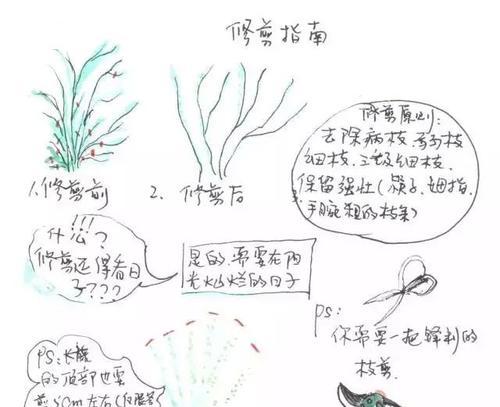 修剪指南
1.修剪前
2. 修剪后
修剪原则:
去除病枝.弱枝
细枝.三级细枝.
保留强壮(筷子.拇指.
手腕粗的枝条)
什么?!!!
修剪还得看日
子???
是的.需要在阳
光灿烂的日子
ps:
你需要一把锋利的
枝剪.
PS:长枝
的顶部也要
剪5cm左右